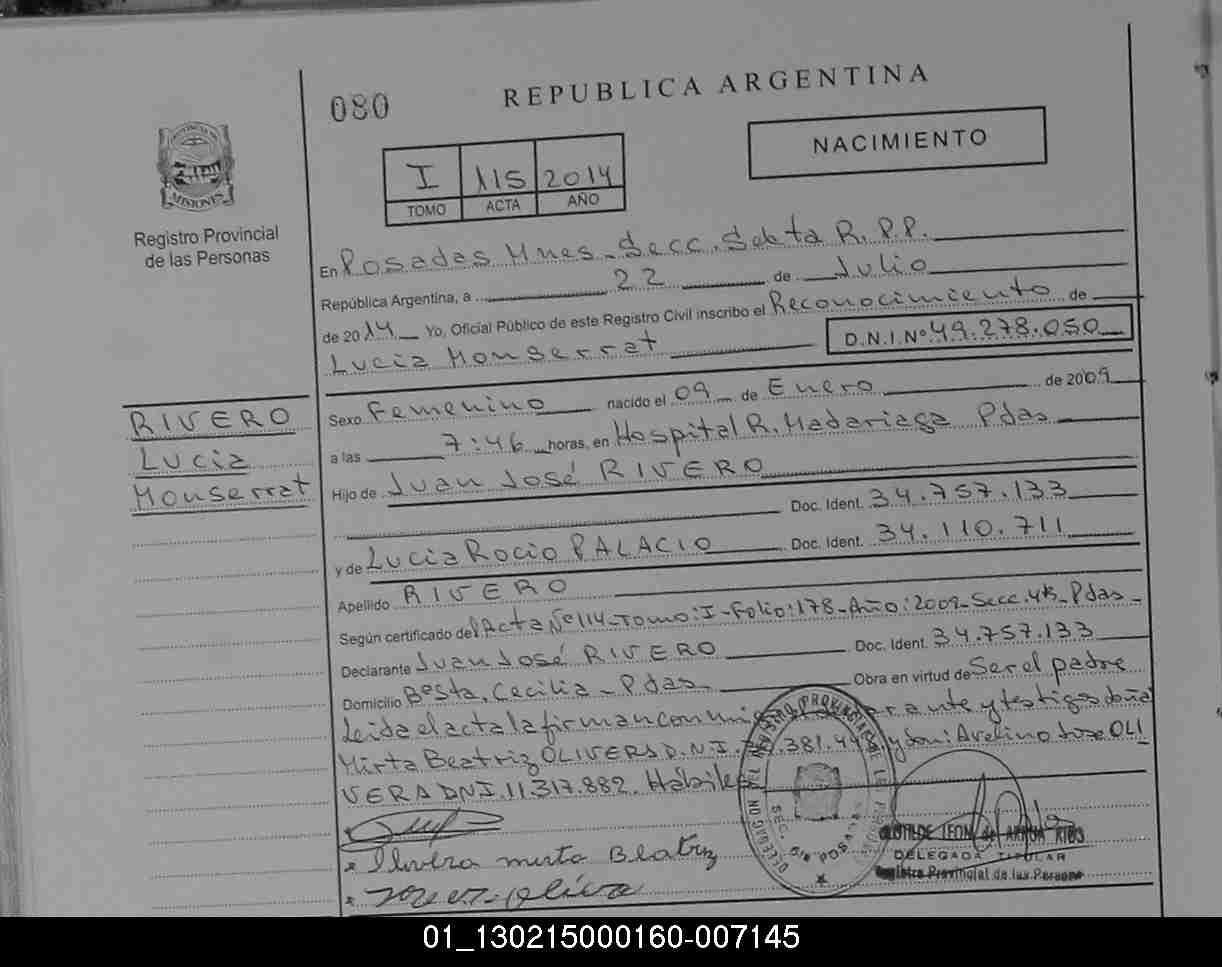 080
REPUBLICA ARGENTINA
NACIMIENTO
I 115 2014
TOMO ACTA AÑO
PROVINCIA DE
MISIONES
Registro Provincial
de las Personas
En Posadas Mnes. Secc. Sexta R.P.P.
República Argentina, a 22 de Julio
de 2014 Yo, Oficial Público de este Registro Civil inscribo el Reconocimiento de
Lucia Monserrat D.N.I. Nº 49.278.050
RIVERO
Lucia
Monserrat
Sexo Femenino nacido el 09 de Enero de 2009
a las 7:46 horas, en Hospital R. Madariaga Pdas
Hijo de Juan José RIVERO
Doc. Ident. 34.757.133
y de Lucia Rocio PALACIO Doc. Ident. 34.110.711
Apellido RIVERO
Según certificado del Acta Nº 114-Tomo: I-Folio: 178-Año: 2009-Secc. 4ta-Pdas-
Declarante Juan José RIVERO Doc. Ident. 34.757.133
Domicilio Bº Sta. Cecilia - Pdas. Obra en virtud de Ser el padre
Leida el acta la firman conmigo y testigos doña
Mirta Beatriz OLIVERA D.N.I. 381.4 y don: Avelino Jose OLI
VERA DNI. 11.317.882. Hábiles
Olivera mirta Beatriz
DELEGADA TITULAR
Registro Provincial de las Personas
01_130215000160-007145